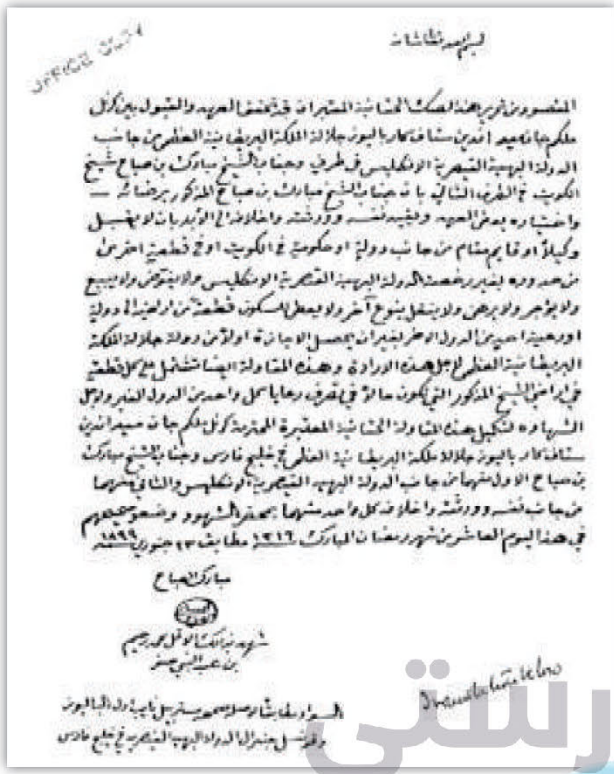 OFFICE COPY
بسم الله تعالى شانه
المقصود من تحرير هذه الصكت الحقانية المشهران قد تحقق العهد والقبول بين كرنل
ملكم جان ميد اندين ستاف كار باليوز جلالة الملكة البريطانية العظمى من جانب
الدولة البهية القيصرية الانكليس في طرف وجناب الشيخ مبارك بن صباح شيخ
الكويت في الطرف الثاني بان جناب الشيخ مبارك بن صباح المذكور برضائه
واختياره يعطى العهد ويقيد نفسه وورثته واخلافه الى الأبد بان لا يقبل
وكيلا او قايم مقام من جانب دولة او حكومة في الكويت او في قطعة اخرى
من حدوده بغير رخصت الدولة البهية القيصرية الانكليس ولا يفوض ولا يبيع
ولا يؤجر ولا يرهن ولا ينقل بنوع آخر ولا يعطى للسكون قطعة من اراضيه الى دولة
او رعية احد من الدول الاخر بغير ان يحصل الاجازة اولا من دولة جلالة الملكة
البريطانية العظمى لاجل هذه الارادة وهذه المقاولة ايضا تشتمل على كل قطعة
في اراضي الشيخ المذكور التي تكون حالا في تصرف رعايا كل واحد من الدول الغير ولاجل
الشهاده لتكيل هذه المقاولة الحقانية المعتبرة المحترمة كرنل ملكم جان ميد اندين
ستاف كار باليوز جلالة ملكة البريطانية العظمى في خليج فارس وجناب الشيخ مبارك
بن صباح الاول منهما من جانب الدولة البهية القيصرية الانكليس والثاني منهما
من جانب نفسه وورثته واخلافه كل واحد منهما بمحضر الشهود وضعو صحيحهم
في هذا اليوم العاشر من شهر رمضان المبارك ١٣١٦ مطابق ٢٣ جنوري ١٨٩٩
مبارك الصباح
شهد بذلك الاقل محمد رحيم
بن عبد النبي صفر
السواد
وقونسل جنرال الدولة البهية القيصرية في خليج فارس
رستى